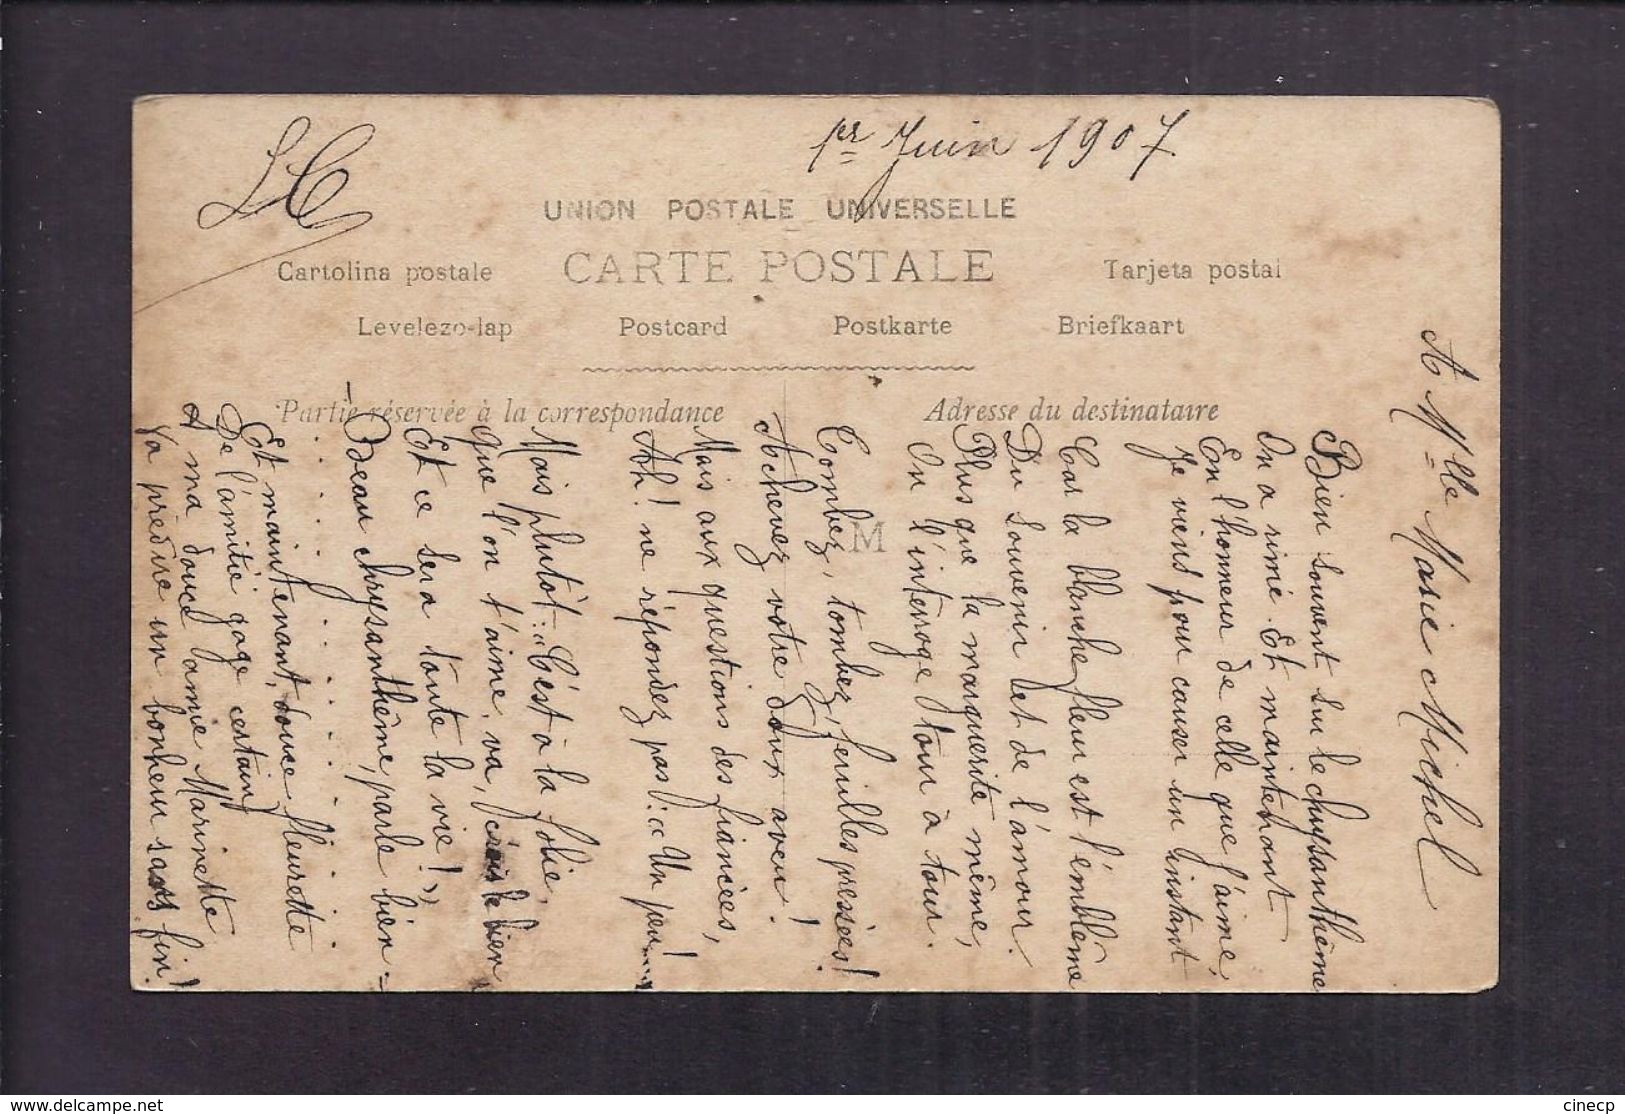 LC
1er Juin 1907.
UNION POSTALE UNIVERSELLE
CARTE POSTALE
Cartolina postale
Tarjeta postal
Levelezo-lap
Postcard
Postkarte
Briefkaart
Partie réservée à la correspondance
Adresse du destinataire
M
A Mlle Marie Michel
Bien souvent sur le chrysanthème
On a rimé. Et maintenant
En l'honneur de celle que j'aime,
Je viens pour causer un instant
Car la blanche fleur est l'emblème
Du Souvenir et de l'amour.
Plus que la marguerite même,
On l'interroge tour à tour.
Tombez, tombez, feuilles pressées!
Achevez votre doux aveu!
Mais aux questions des fiancées,
Ah! ne répondez pas: « Un peu!
Mais plutôt: « C'est à la folie,
Que l'on t'aime, va, crois le bien
Et ce sera toute la vie! »
— Beau chrysanthème, parle bien =
. . . . . . . . . . . .
Et maintenant, douce fleurette
De l'amitié gage certain,
A ma douce amie Marinette
Va prédire un bonheur sans fin!
www.delcampe.net
cinecp